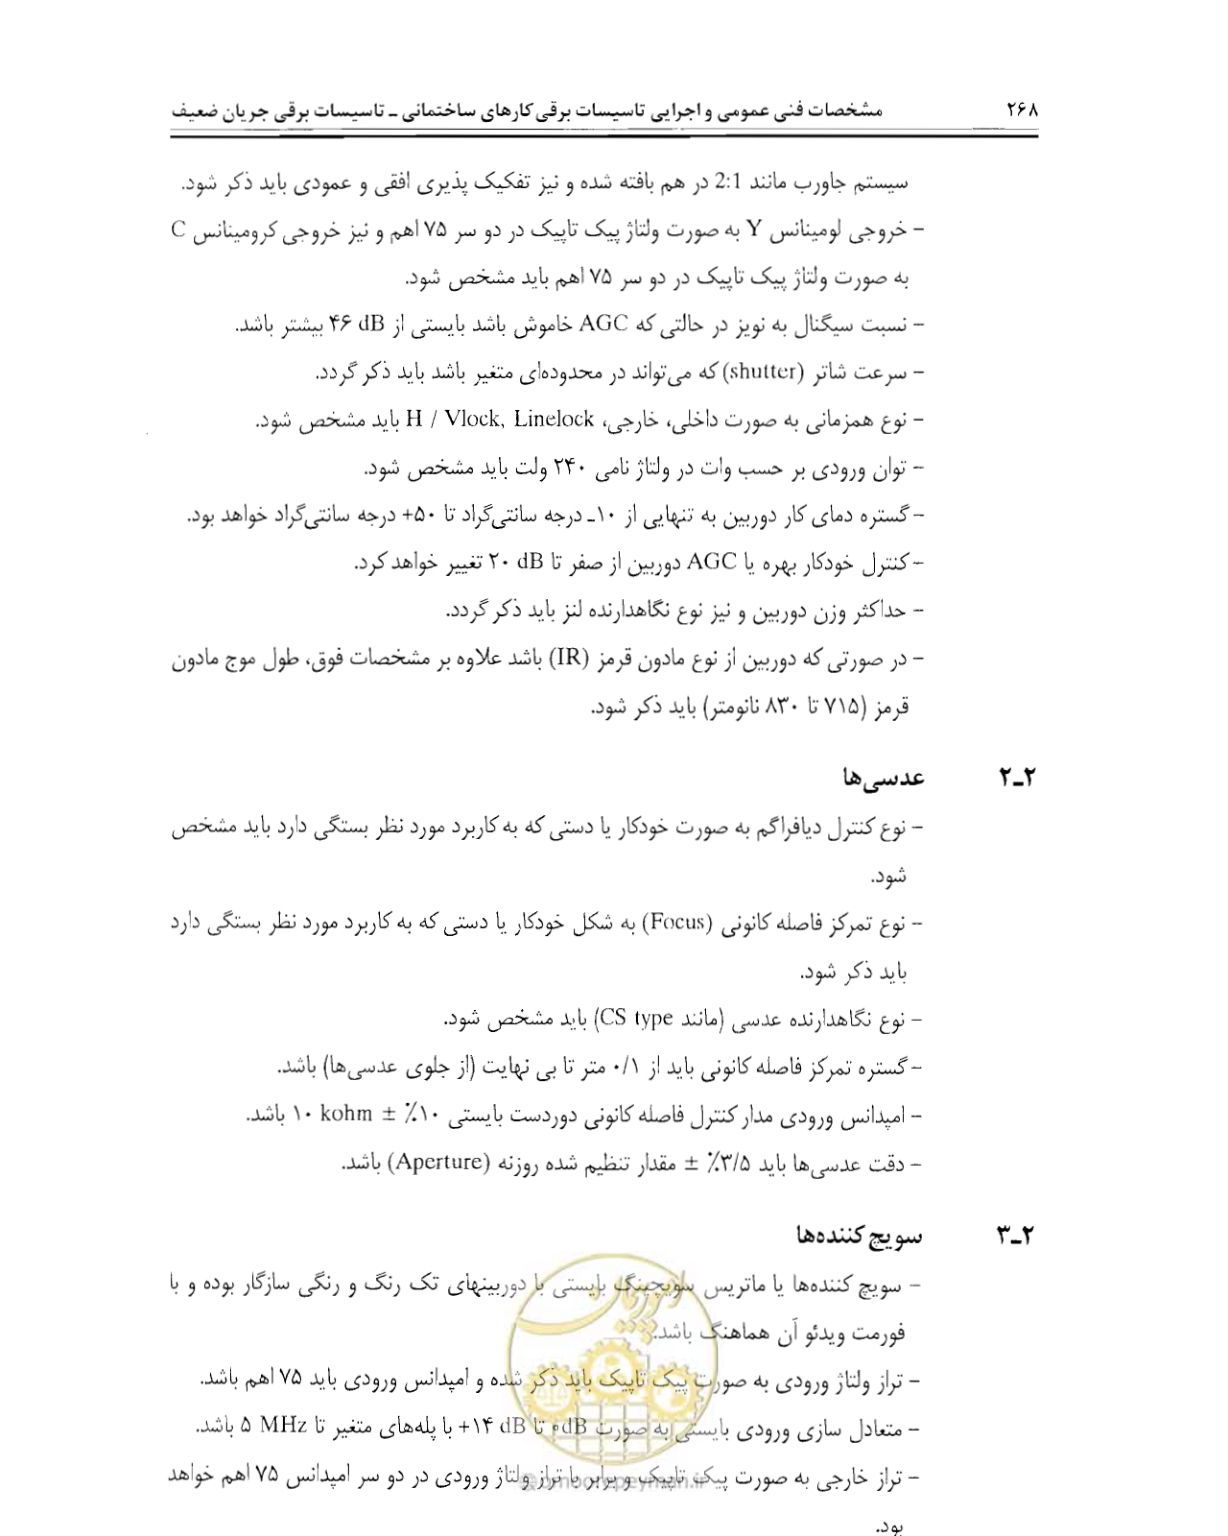 ۲۶۸ مشخصات فنی عمومی و اجرایی تاسیسات برقی کارهای ساختمانی ـ تاسیسات برقی جریان ضعیف
سیستم جاورب مانند 2:1 در هم بافته شده و نیز تفکیک پذیری افقی و عمودی باید ذکر شود.
- خروجی لومینانس Y به صورت ولتاژ پیک تاپیک در دو سر ۷۵ اهم و نیز خروجی کرومینانس C
به صورت ولتاژ پیک تاپیک در دو سر ۷۵ اهم باید مشخص شود.
- نسبت سیگنال به نویز در حالتی که AGC خاموش باشد بایستی از ۴۶ dB بیشتر باشد.
- سرعت شاتر (shutter) که می‌تواند در محدوده‌ای متغیر باشد باید ذکر گردد.
- نوع همزمانی به صورت داخلی، خارجی، H / Vlock, Linelock باید مشخص شود.
- توان ورودی بر حسب وات در ولتاژ نامی ۲۴۰ ولت باید مشخص شود.
- گستره دمای کار دوربین به تنهایی از ۱۰ـ درجه سانتی‌گراد تا ۵۰+ درجه سانتی‌گراد خواهد بود.
- کنترل خودکار بهره یا AGC دوربین از صفر تا ۲۰ dB تغییر خواهد کرد.
- حداکثر وزن دوربین و نیز نوع نگاهدارنده لنز باید ذکر گردد.
- در صورتی که دوربین از نوع مادون قرمز (IR) باشد علاوه بر مشخصات فوق، طول موج مادون
قرمز (۷۱۵ تا ۸۳۰ نانومتر) باید ذکر شود.
۲ـ۲ عدسی‌ها
- نوع کنترل دیافراگم به صورت خودکار یا دستی که به کاربرد مورد نظر بستگی دارد باید مشخص
شود.
- نوع تمرکز فاصله کانونی (Focus) به شکل خودکار یا دستی که به کاربرد مورد نظر بستگی دارد
باید ذکر شود.
- نوع نگاهدارنده عدسی (مانند CS type) باید مشخص شود.
- گستره تمرکز فاصله کانونی باید از ۰/۱ متر تا بی نهایت (از جلوی عدسی‌ها) باشد.
- امپدانس ورودی مدار کنترل فاصله کانونی دوردست بایستی ۱۰٪ ± ۱۰ kohm باشد.
- دقت عدسی‌ها باید ۳/۵٪ ± مقدار تنظیم شده روزنه (Aperture) باشد.
۲ـ۳ سویچ کننده‌ها
- سویچ کننده‌ها یا ماتریس سویچینگ بایستی با دوربینهای تک رنگ و رنگی سازگار بوده و با
فورمت ویدئو آن هماهنگ باشد.
- تراز ولتاژ ورودی به صورت پیک تاپیک باید ذکر شده و امپدانس ورودی باید ۷۵ اهم باشد.
- متعادل سازی ورودی بایستی به صورت ۰dB تا ۱۴ dB+ با پله‌های متغیر تا ۵ MHz باشد.
- تراز خارجی به صورت پیک تاپیک و برابر با تراز ولتاژ ورودی در دو سر امپدانس ۷۵ اهم خواهد
بود.